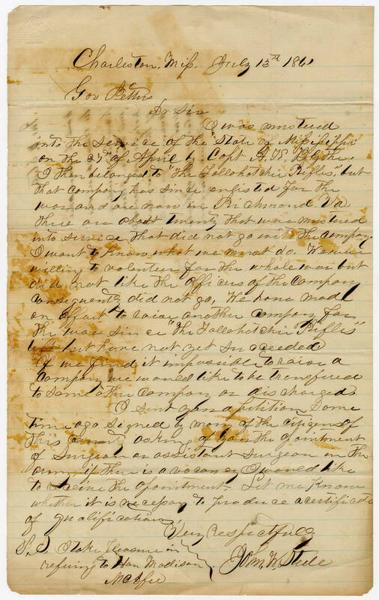 Charleston, Miss July 13th 1861
Gov Pettus
Dr Sir
I was mustered
into the service of the State of Mississippi
on the 27th of April by Capt
I then belonged to the Tallahatchie Rifles, but
that company has since enlisted for the
war and are now in Richmond Va
There are about twenty that were mustered
into service that did not go with the Company
I want to know what we must do. We were
willing to volunteer for the whole war but
did not like the officers of the Company
Consequently did not go. We have made
an effort to raise another Company for
the war since "the Tallahatchie Rifles"
left but have not yet succeeded
If we find it impossible to raise a
Company we would like to be transfered
to some other Company or discharged
I sent you a petition some
time ago signed by many of the citizens of
this County asking of you the apointment
of Surgeon or assistant Surgeon in the
army if there is a vacancy I would like
to receive the apointment. Let me know
whether it is necessary to produce a certificate
of qualification
Very Respectfully
John W Steele
P.S. I take pleasure in
refering to Hon Madison
McAfee